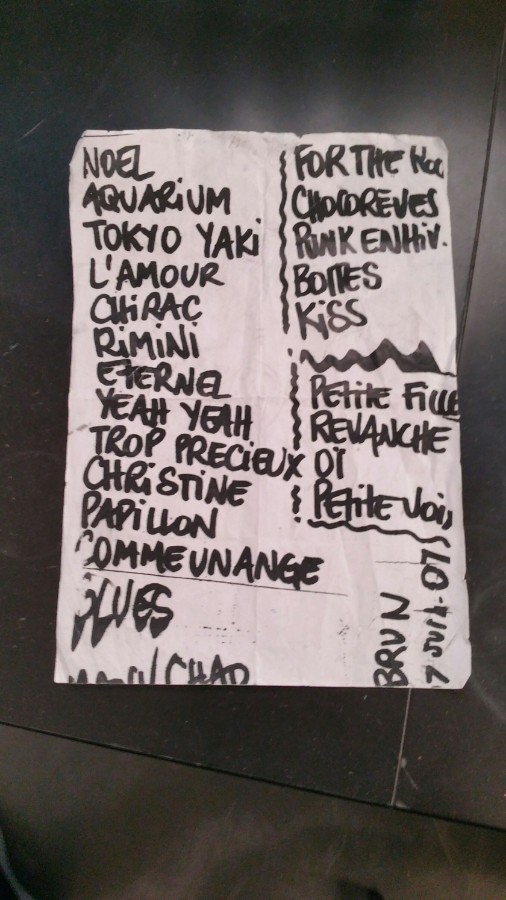 NOEL
AQUARiUM
TOKYO YAKi
L'AMOUR
CHiRAC
RiMiNi
ETERNEL
YEAH YEAH
TROP PRECiEUX
CHRiSTINE
PAPiLLON
COMME UN ANGE
BLUES
FOR THE
CHOCOREVES
PUNK EN HiV.
BOITES
KiSS
PETiTE FiLLE
REVANCHE
OÏ
PETiTE
BRUN
7 JUiL. 07